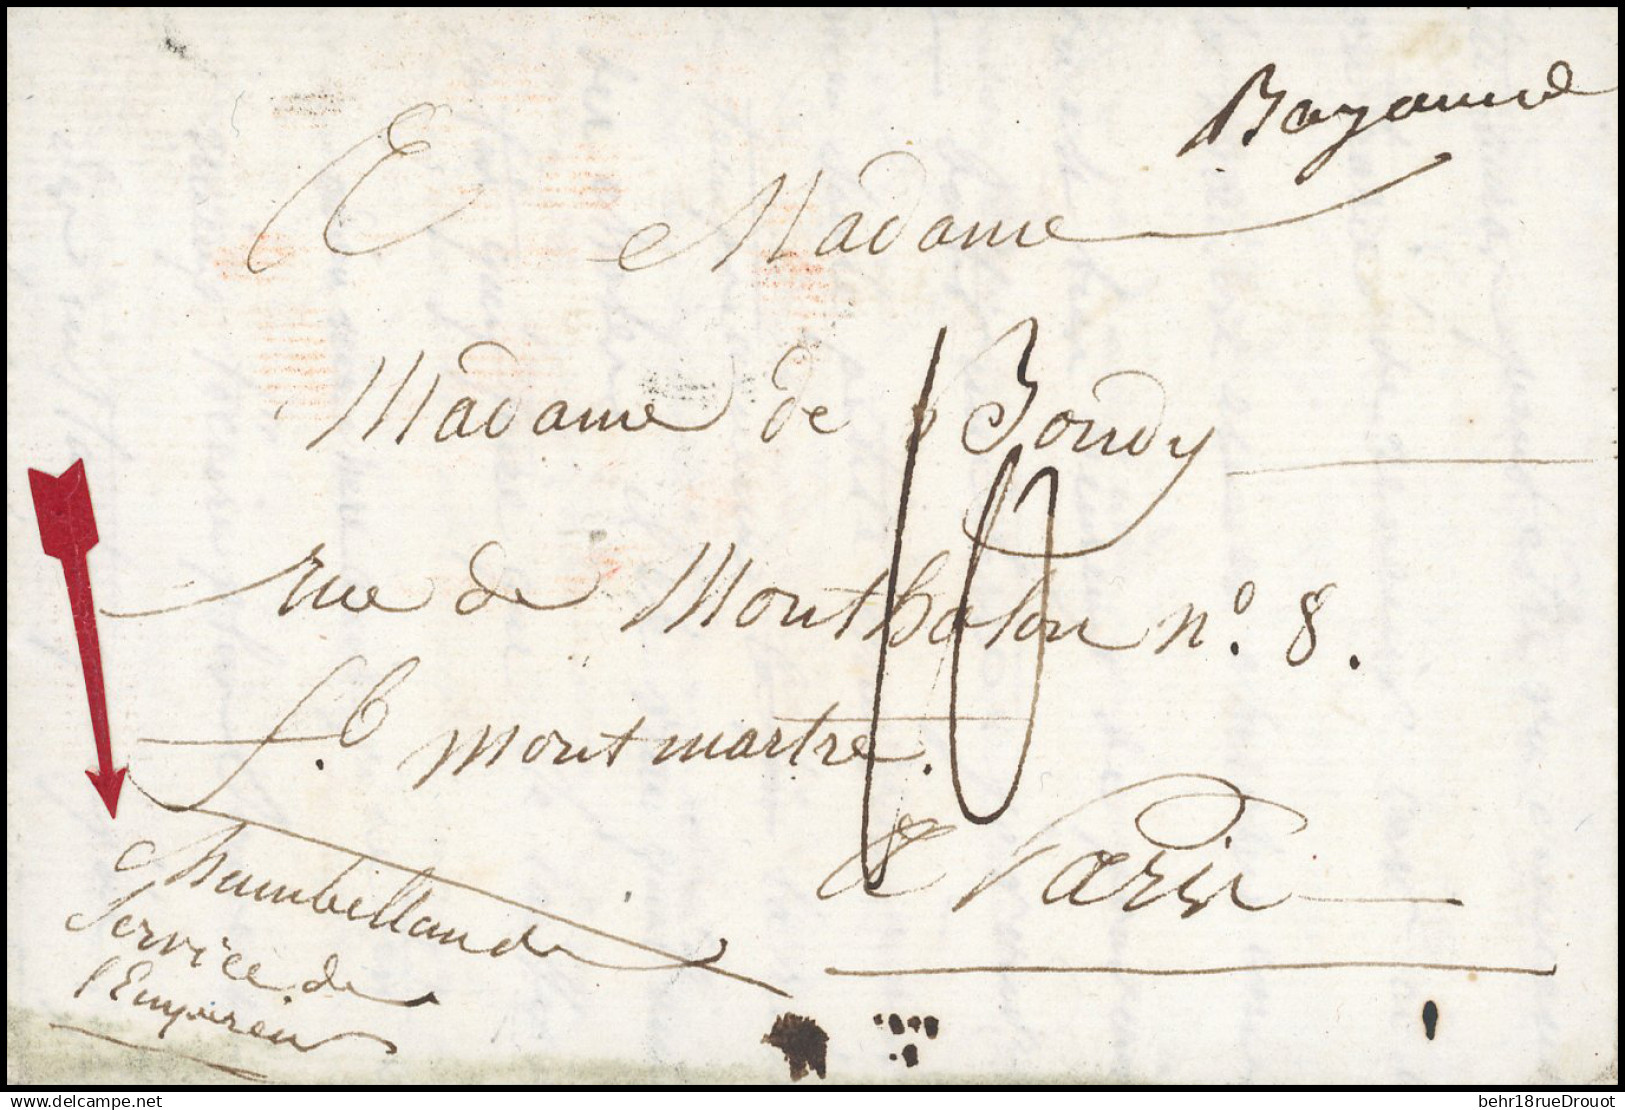 Bayonne
A Madame
Madame de Bondy
rue de Montholon n° 8.
f.b montmartre.
à Paris
10
Chambellan de
Service de
l'Empereur
behr18rueDrouot